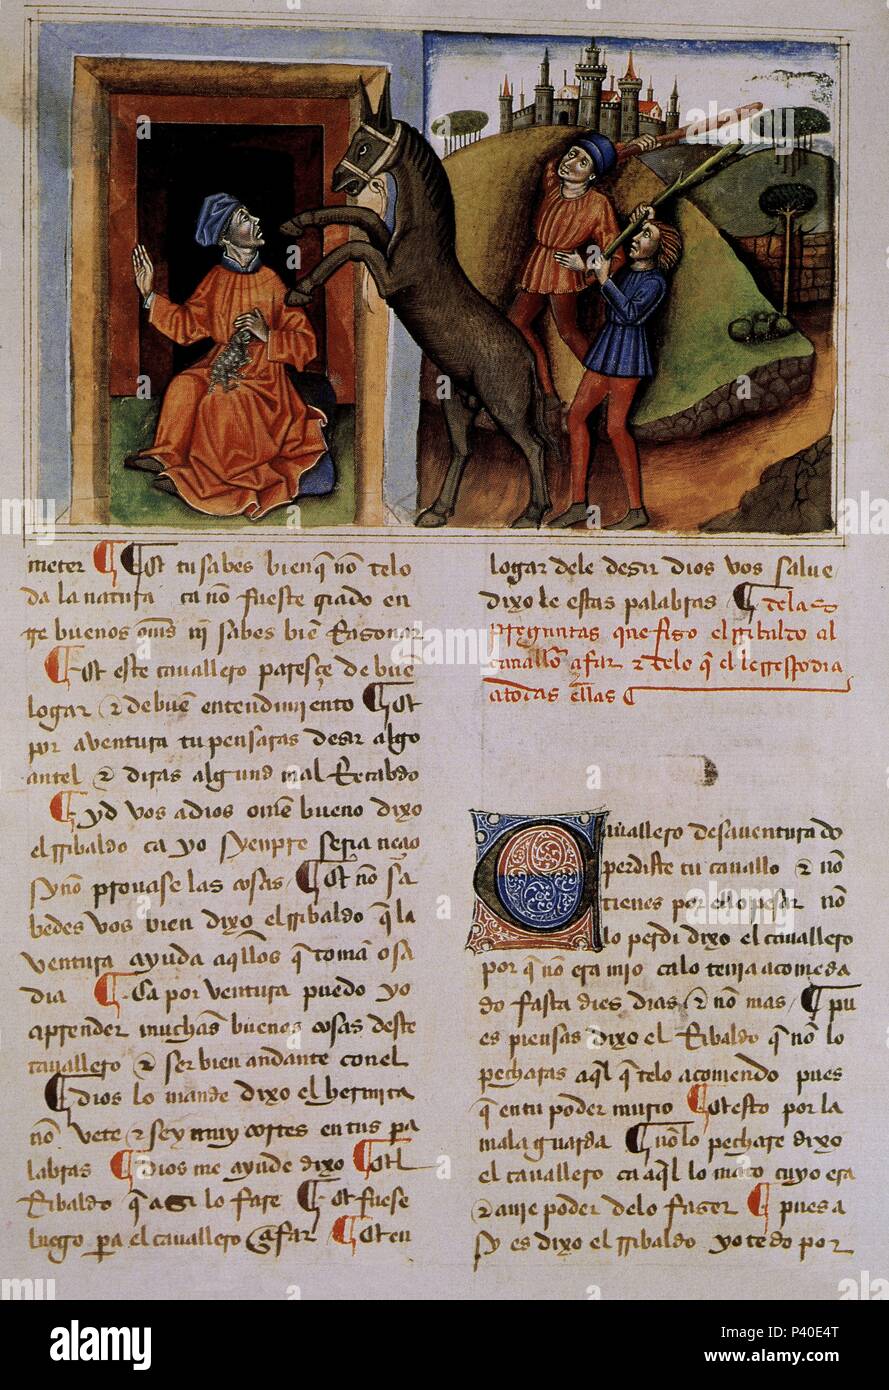 meter Et tu sabes bien q̄ nō telo
da la natura ca nō fueste criado en
tre buenos om̄s nj̄ sabes biē Razonar
Et este cauallero paresçe de buē
logar ⁊ de buē entendimiento Et
por aventura tu pensaras desir algo
antel ⁊ diras algund mal Recabdo
yd vos a dios om̄e bueno dixo
el rribaldo ca yo syenpre seria neçio
sy nō prouase las cosas Et nō sa
bedes vos bien dixo el rribaldo q̄ la
ventura ayuda aq̄llos q̄ tomā osa
dia Ca por ventura puedo yo
aprender muchas buenas cosas deste
cauallero ⁊ ser bien andante con el
dios lo mande dixo el hermita
nō vete ⁊ sey muy cortes en tus pa
labras dios me ayude dixo el
Ribaldo q̄ asi lo fare Et fuese
luego pa el cauallero Zifar Et en
logar dele desir dios vos salue
dixole estas palabras De las
preguntas que fizo el rribaldo al
cauallō zifar ⁊ de lo q̄ el le rrespondia
a todas ellas
Cauallero desauenturado
perdiste tu cauallo ⁊ nō
tienes por ello pesar nō
lo perdi dixo el cauallero
por q̄ nō era mio ca lo tenia acomeda
do fasta dies dias ⁊ nō mas pu
es piensas dixo el Ribaldo q̄ nō lo
pecharas aq̄l q̄ telo acomendo pues
q̄ en tu poder murio Et esto por la
mala guarda nō lo pechare dixo
el cauallero ca aq̄l lo mato cuyo era
⁊ auie poder delo faser pues a
sy es dixo el rribaldo yo te do por
alamy
P40E4T
www.alamy.com